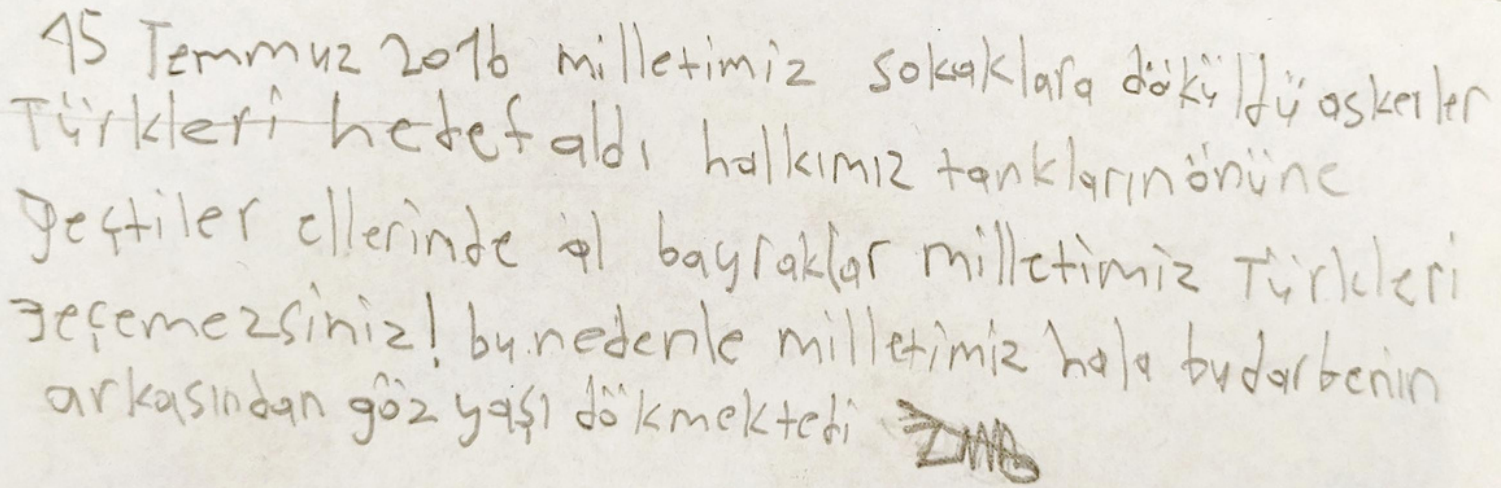 15 Temmuz 2016 milletimiz sokaklara döküldü askerler
Türkleri hedef aldı halkımız tankların önüne
geçtiler ellerinde al bayraklar milletimiz Türkleri
geçemezsiniz! bu nedenle milletimiz hala bu darbenin
arkasından göz yaşı dökmektedi